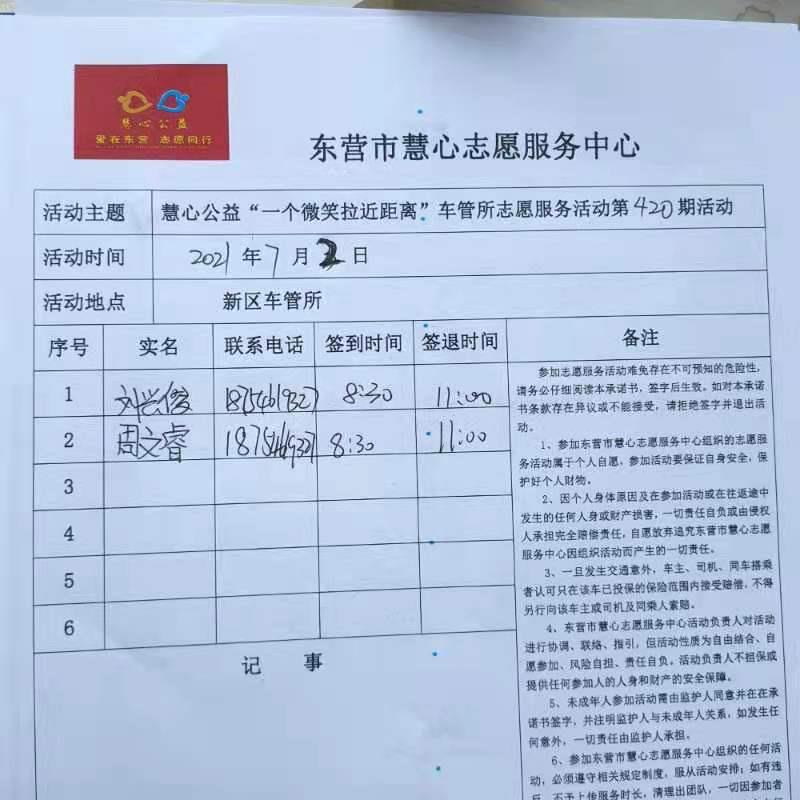 慧心公益
爱在东营 志愿同行
东营市慧心志愿服务中心
活动主题 慧心公益“一个微笑拉近距离”车管所志愿服务活动第420期活动
活动时间 2021年7月2日
活动地点 新区车管所
序号 实名 联系电话 签到时间 签退时间 备注
1 刘兴俊 18754619327 8:30 11:00
2 周文睿 18754619327 8:30 11:00
3
4
5
6
记 事
参加志愿服务活动难免存在不可预知的危险性,
请务必仔细阅读本承诺书，签字后生效。如对本承诺
书条款存在异议或不能接受，请拒绝签字并退出活
动。
1、参加东营市慧心志愿服务中心组织的志愿服
务活动属于个人自愿，参加活动要保证自身安全，保
护好个人财物。
2、因个人身体原因及在参加活动或在往返途中
发生的任何人身或财产损害，一切责任自负或由侵权
人承担完全赔偿责任，自愿放弃追究东营市慧心志愿
服务中心因组织活动而产生的一切责任。
3、一旦发生交通意外，车主、司机、同车搭乘
者认可只在该车已投保的保险范围内接受赔偿，不得
另行向该车主或司机及同乘人索赔。
4、东营市慧心志愿服务中心活动负责人对活动
进行协调、联络、指引，但活动性质为自由结合、自
愿参加、风险自担、责任自负。活动负责人不担保或
提供任何参加人的人身和财产的安全保障。
5、未成年人参加活动需由监护人同意并在在承
诺书签字，并注明监护人与未成年人关系，如发生任
何意外，一切责任由监护人承担。
6、参加东营市慧心志愿服务中心组织的任何活
动，必须遵守相关规定制度，服从活动安排；如有违
反，不予上传服务时长，清理出团队，一切因参加者